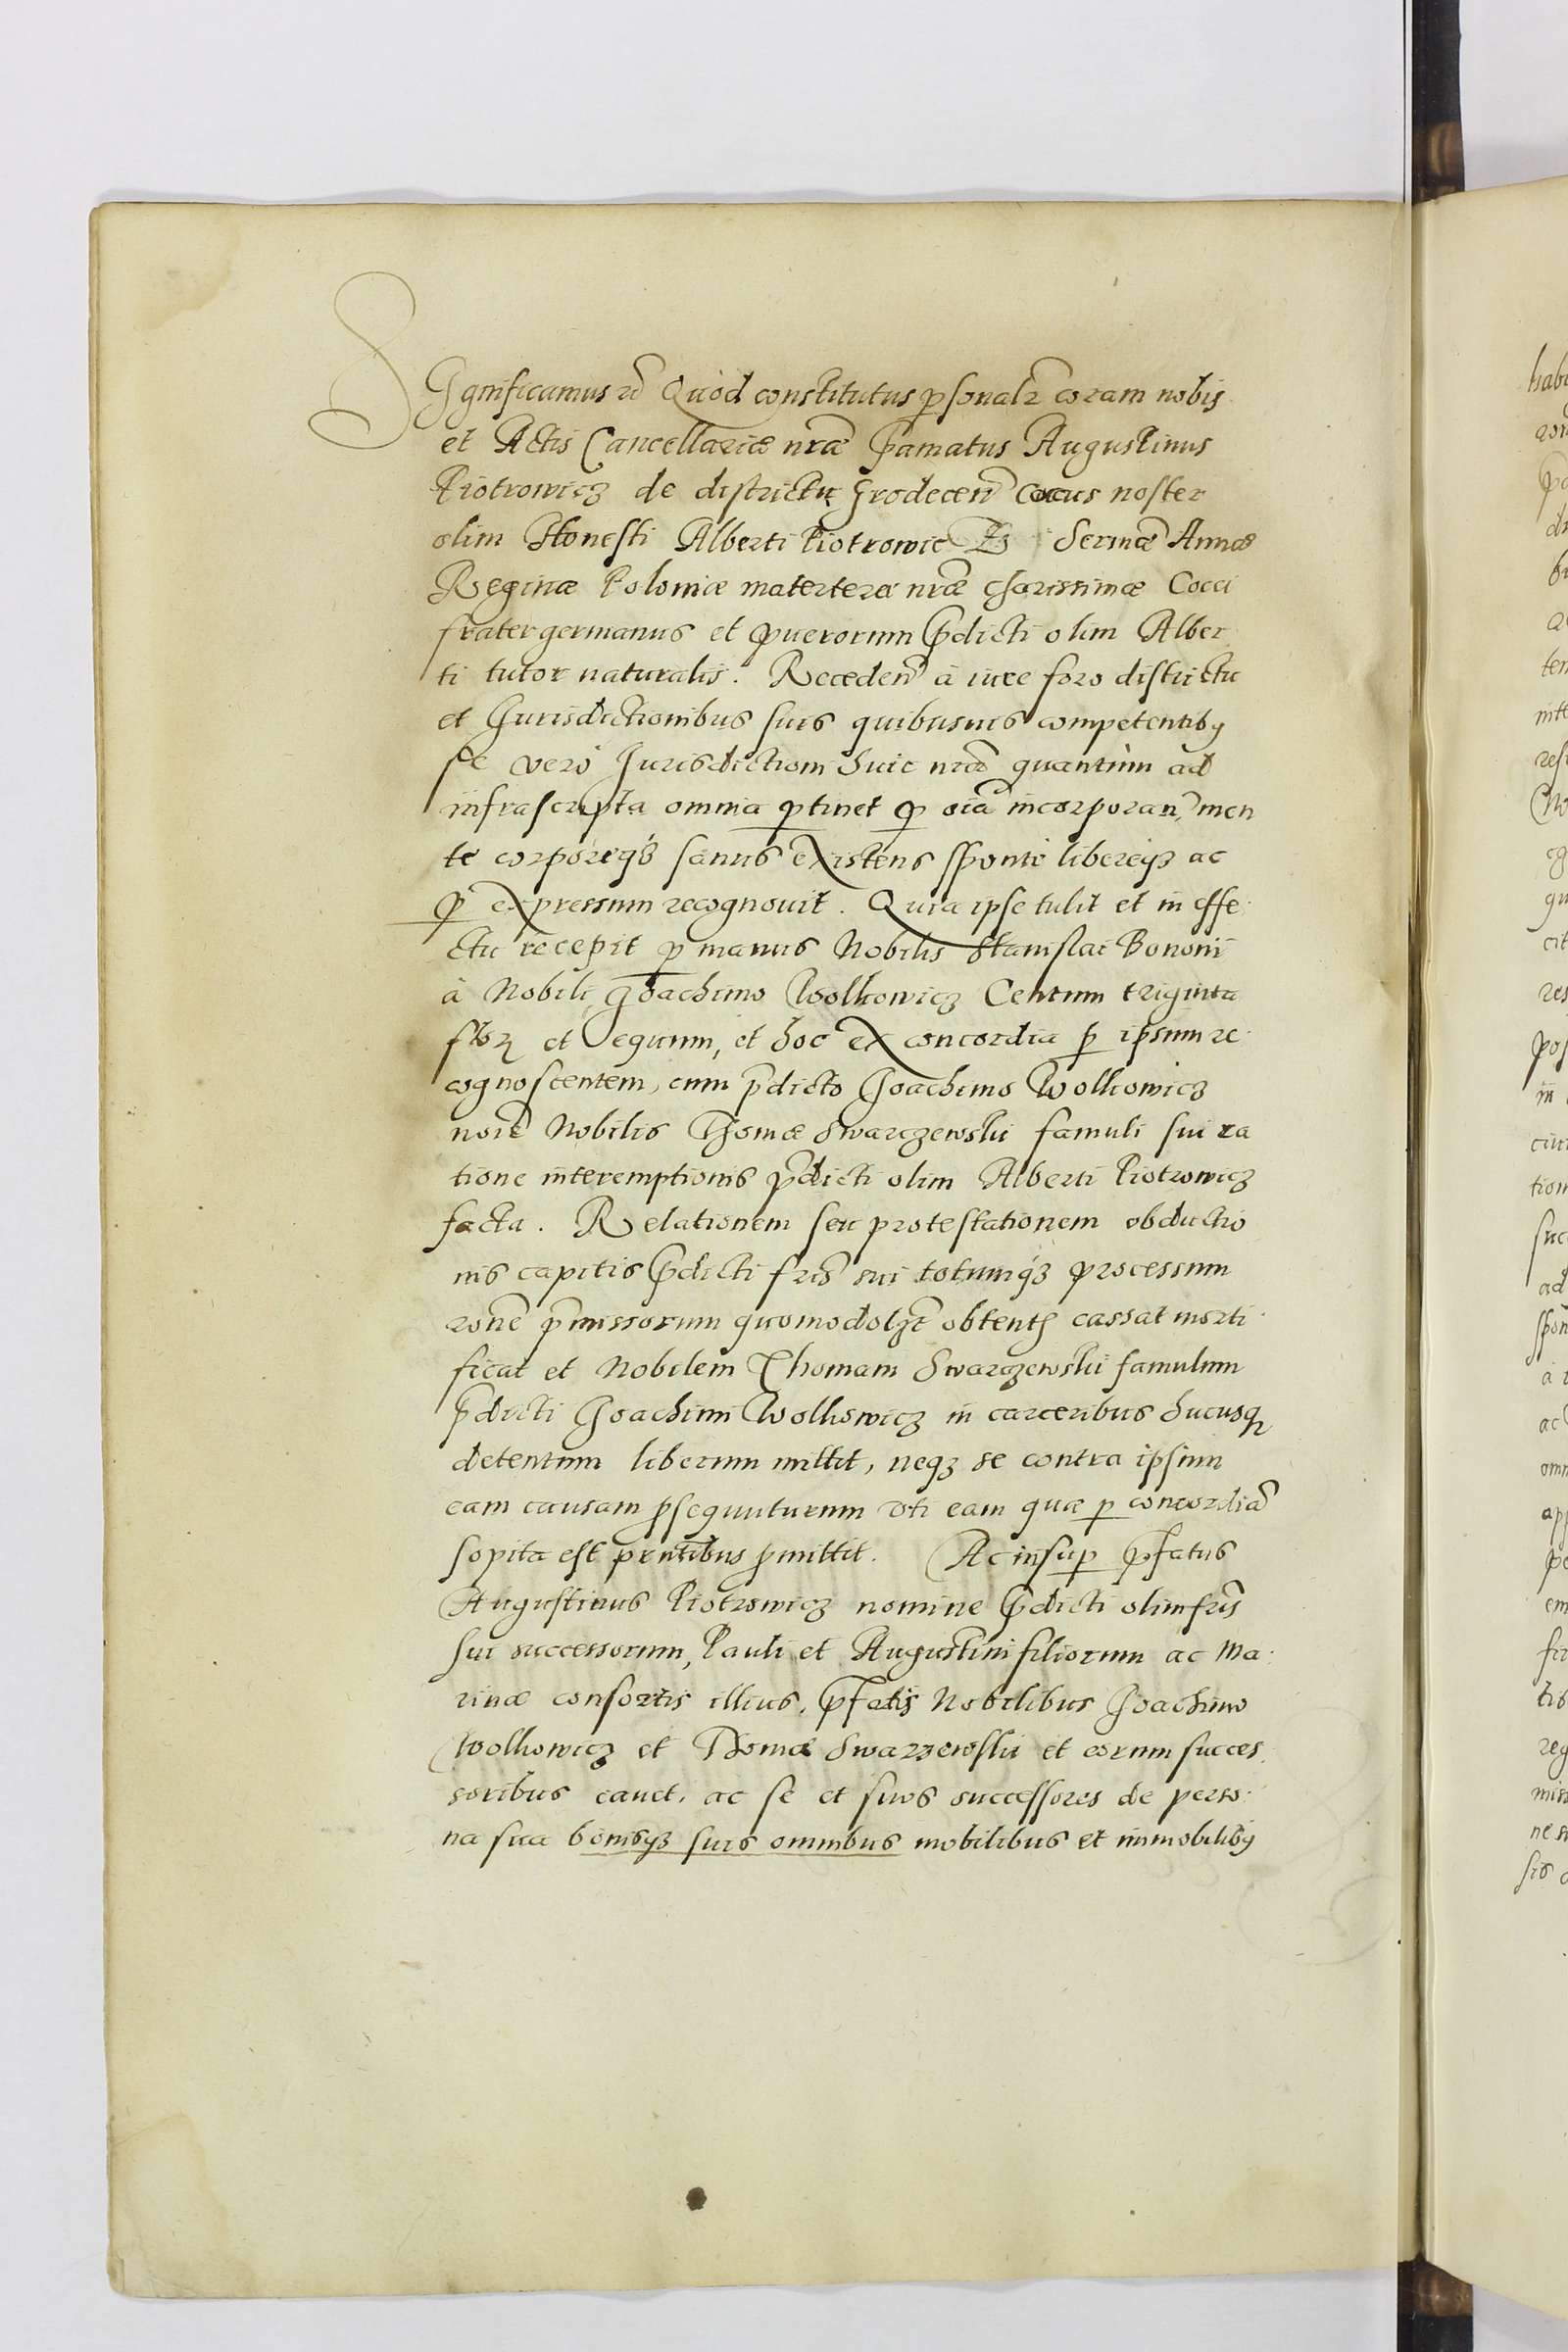 SIgnificamus etc Quod constitutus psonalr coram nobis
et Actis Cancellariæ nræ Famatus Augustinus
Piotrowicz de districtu Grodecen Cocus noster
olim Honesti Alberti Piotrowic Z Sermæ Annæ
Reginæ Poloniæ materteræ nræ charissimæ Cocci
frater germanus et puerorum pdicti olim Alber
ti tutor naturalis. Receden à iure foro districtu
et Jurisdictionibus suis quibusuis competentibq
se verò Jurisdictioni huic nræ quantùm ad
infrascripta omnia ptinet p oia incorporan, men
te corporeqꝫ sanus existens sponte libereqꝫ ac
p expressum recognouit. Quia ipse tulit et in effe
ctu recepit p manus Nobilis Stanislai Bononi
à Nobili Joachimo Wolkowicz Centum triginta
flor et equum, et hoc ex concordia p ipsum re
cognoscentem, cum pdicto Joachimo Wolkowicz
noie Nobilis Thomæ Swarczewski famuli sui ra
tione interemptionis pdicti olim Alberti Piotrowicz
facta. Relationem seu protestationem obductio
nis capitis pdicti fris sui totumqꝫ processum
rone pmissorum quomodolzt obtent cassat morti
ficat et Nobilem Thomam Swarczewski famulum
pdicti Joachimi Wolkowicz in carceribus hucusq
detentum liberum mittit, neqꝫ se contra ipsum
eam causam psequuturum vti eam quæ p concordia
sopita est pntibus pmittit. Ac insup pfatus
Augustinus Piotrowicz nomine pdicti olim fris
sui successorum, Pauli et Augustini filiorum ac Ma
rinæ consortis illius, pfatis Nobilibus Joachimo
Wolkowicz et Thomæ Swarzewski et eorum succes
soribus cauet, ac se et suos successores de perso
na sua bonisqꝫ suis omnibus mobilibus et immobilibq